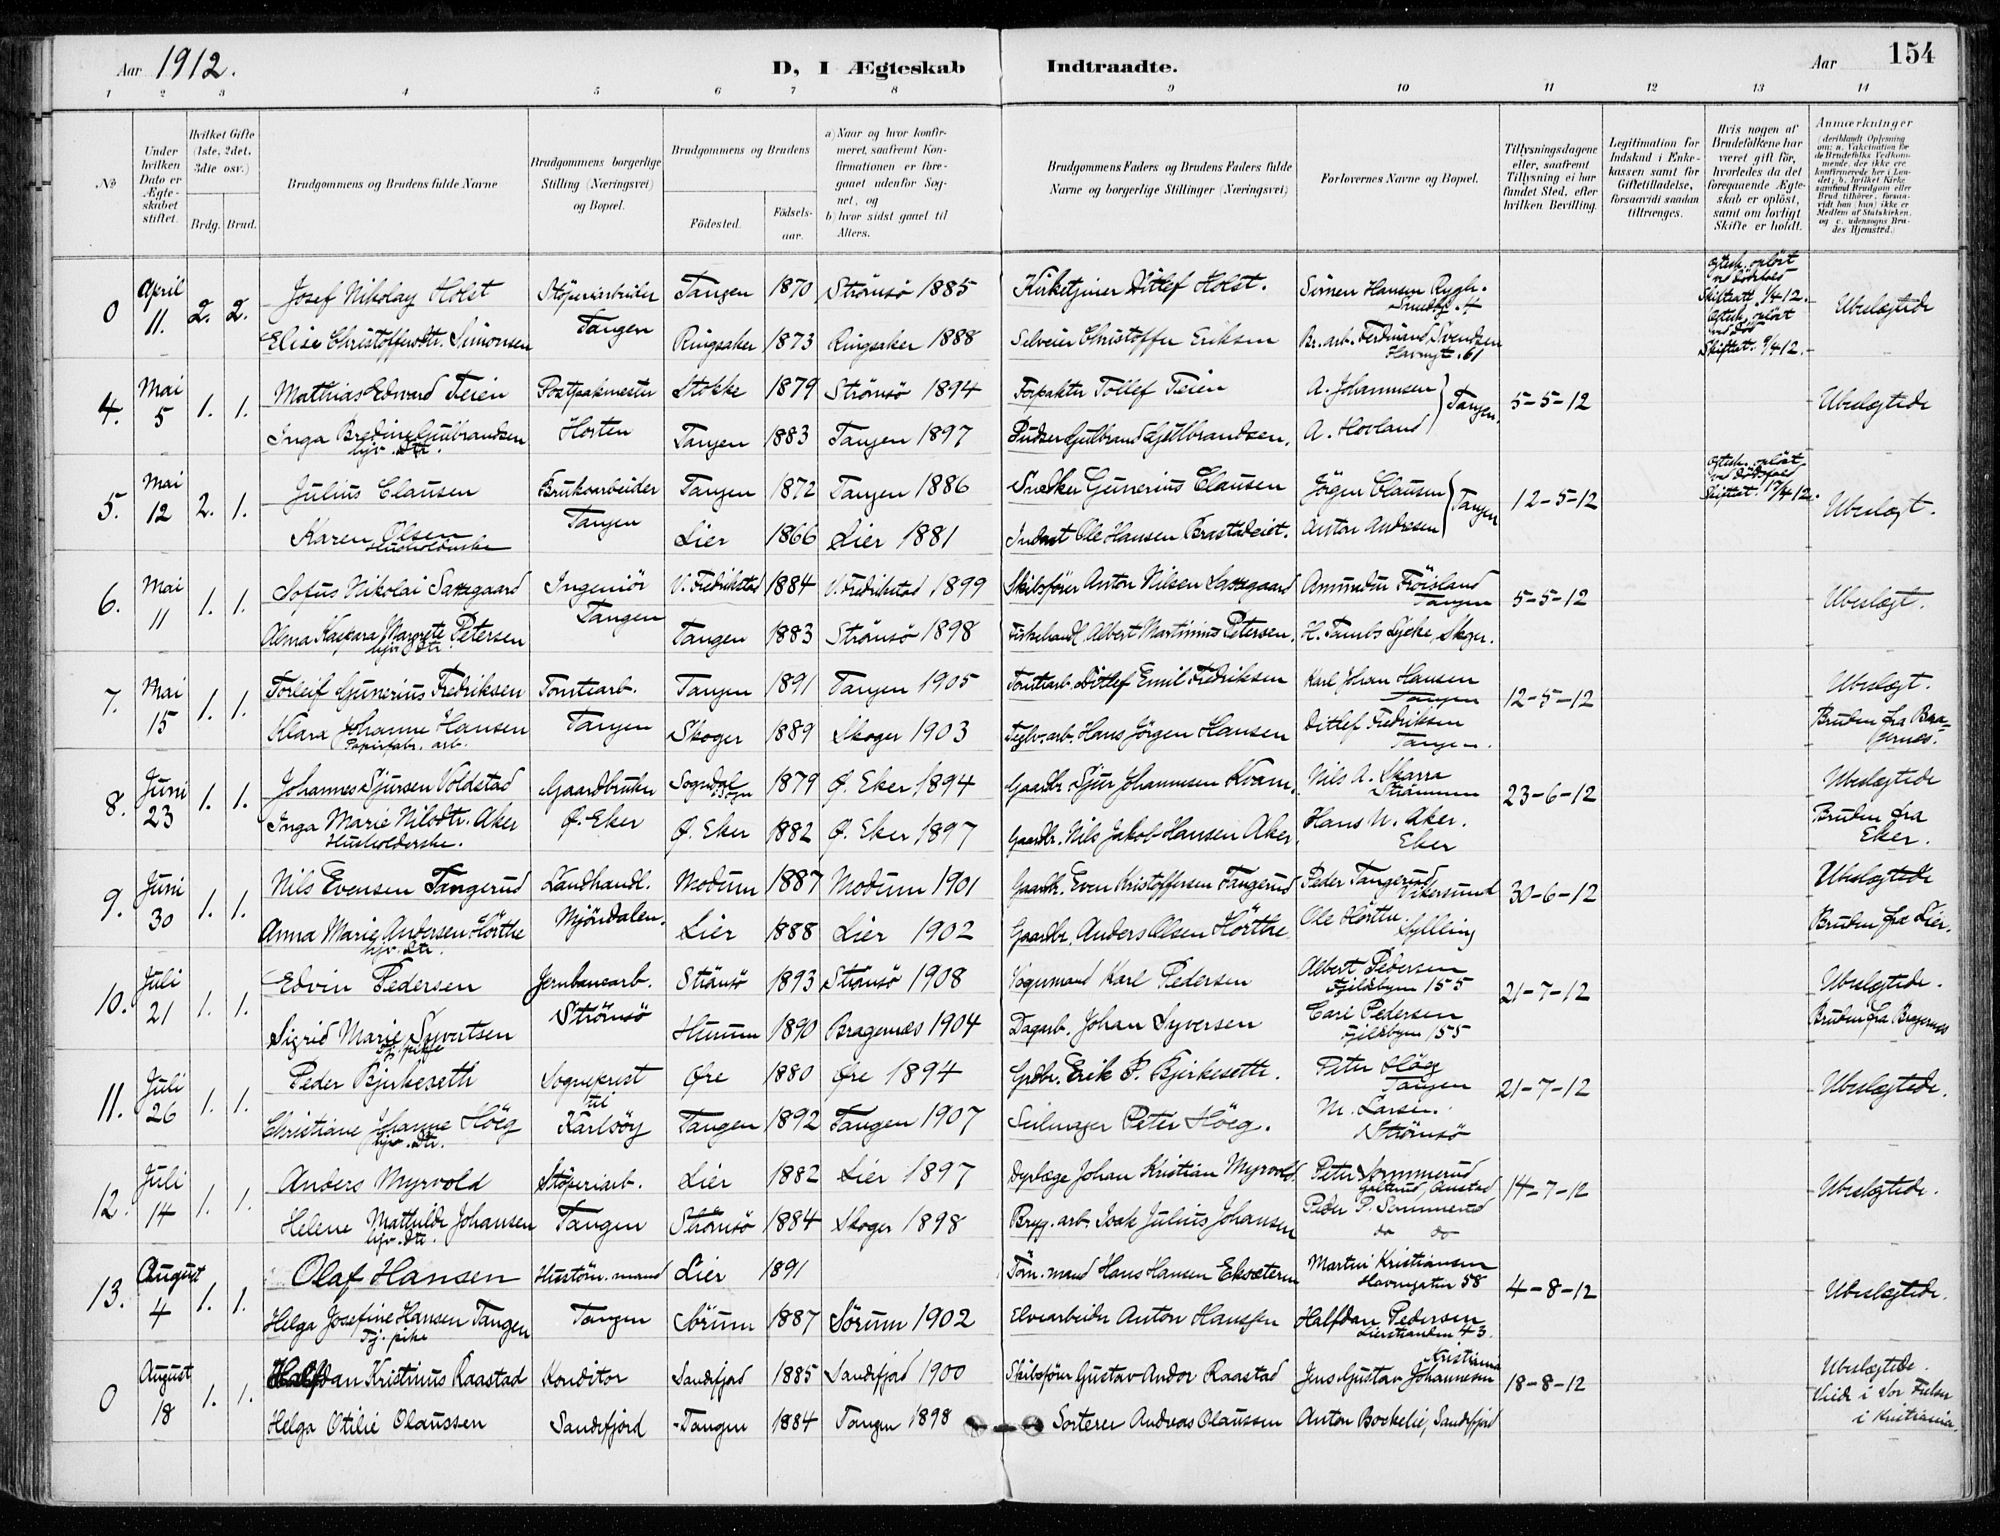 Aar 1912.
D, I Ægteskab Indtraadte.
Aar 154
1 2 3 4 5 6 7 8 9 10 11 12 13 14
No
Under hvilken Dato er Ægteskabet stiftet.
Hvilket Gifte (1ste, 2det, 3die osv.)
Brdg. Brud.
Brudgommens og Brudens fulde Navne
Brudgommens borgerlige Stilling (Næringsvei) og Bopæl.
Brudgommens og Brudens
Födested.
Födsels-aar.
a) Naar og hvor konfirmeret, saafremt Konfirmationen er foregaaet udenfor Sognet, og b) hvor sidst gaaet til Alters.
Brudgommens Faders og Brudens Faders fulde Navne og borgerlige Stillinger (Næringsvei)
Forlovernes Navne og Bopæl.
Tillysningsdagene eller, saafremt Tillysning ei har fundet Sted, efter hvilken Bevilling.
Legitimation for Indskud i Enkekassen samt for Giftetilladelse, forsaavidt saadan tiltrænges.
Hvis nogen af Brudefolkene har været gift för, hvorledes da det foregaaende Ægteskab er oplöst, samt om lovligt Skifte er holdt.
Anmærkninger
0 April 11. 2. 2. Josef Nikolay Holst Stöperiarbeider Tangen 1870 Strömsö 1885 Kirketjener Ditlef Holst. Simen Hansen Rygh. Ægtesk. oplöst ved Dödsfald Skifteatt. 1/4 12. Ubeslægtede
Elise Christoffersdtr. Simonsen Tangen Ringsaker 1873 Ringsaker 1888 Selveier Christoffer Eriksen Br.arb. Ferdinand Svendsen Havnegt. 61 Ægtesk. oplöst ved Död Skifteat. 9/4 12.
4. Mai 5 1. 1. Mathias Edvard Teien Postpakmester Stokke 1879 Strömsö 1894 Forpakter Tollef Teien A. Johannesen Tangen. 5-5-12 Ubeslægtede
Inga Bredine Gulbrandsen hjv. Dtr. Horten Tangen 1883 Tangen 1897 Pudser Gulbrand Gulbrandsen. A. Hovland
5. Mai 12 2. 1. Julius Clausen Bruksarbeider Tangen 1872 Tangen 1886 Snedker Gunerius Clausen Jörgen Clausen Tangen 12-5-12 Ægtesk. oplöst ved Dödsfald Skifteat. 17/4 12. Ubeslægt.
Karen Olsen Husholderske Tangen Lier 1866 Lier 1881 Inderst Ole Hansen Brastadeiet. Anton Andresen
6. Mai 11 1. 1. Sofus Nikolai Saxegaard Ingeniör V. Fredrikstad 1884 V. Fredrikstad 1899 Skibsförer Anton Nilsen Saxegaard Amundur Fröisland Tangen 5-5-12 Ubeslægt.
Alma Kaspara Margrete Petersen hjv. Dtr. Tangen Tangen 1883 Strömsö 1898 Fiskehandl. Albert Martinius Petersen. H. Tambs Lyche, Skoger.
7. Mai 15 1. 1. Torleif Gunerius Fredriksen Tomtearb. Tangen 1891 Tangen 1905 Tomtearb. Ditlef Emil Fredriksen Karl Johan Hansen Tangen 12-5-12 Ubeslægt.
Klara Johanne Hansen Papirfabr. arb. Tangen Skoger 1889 Skoger 1903 Teglv. arb. Hans Jörgen Hansen Ditlef Fredriksen Tangen. Bruden fra Bragernes.
8. Juni 23 1. 1. Johannes Sjursen Voldstad Gaardbruker Sogndal Sogn 1879 Ø. Eker 1894 Gaardbr. Sjur Johannesen Kvam. Nils A. Skarra Strömmen 23-6-12 Ubeslægtede
Inga Marie Nilsdtr. Aker Husholderske. Ø. Eker Ø. Eker 1882 Ø. Eker 1897 Gaardbr. Nils Jakob Hansen Aker. Hans N. Aker. Eker Bruden fra Eker.
9. Juni 30 1. 1. Nils Evensen Tangerud Landhandl. Modum 1887 Modum 1901 Gaardb. Even Kristoffersen Tangerud Peder Tangerud Vikersund 30-6-12 Ubeslægtede
Anna Marie Andersen Hörthe hjv. Dtr. Mjöndalen. Lier 1888 Lier 1902 Gaardbr. Anders Olsen Hörthe Ole Horten. Sylling Bruden fra Lier.
10. Juli 21 1. 1. Edvin Pedersen Jernbanearb. Strömsö 1893 Strömsö 1908 Vognmand Karl Pedersen Albert Pedersen Fjeldbyen 155 21-7-12 Ubeslægtede.
Sigrid Marie Syvertsen Tj. pike Strömsö Hurum 1890 Bragernæs 1904 Dagarb. Johan Syversen Carl Pedersen Fjeldbyen 155 Bruden fra Bragernes
11. Juli 26 1. 1. Peder Bjerkeseth Sogneprest Øre 1880 Øre 1894 Grdbr. Erik P. Bjerkeseth. Peter Höeg Tangen 21-7-12 Ubeslægtede.
Christiane Johanne Höeg hjv. Dtr. til Karlsöy Tangen 1892 Tangen 1907 Seilmager Peter Höeg. M. Larsen. Strömsö
12. Juli 14 1. 1. Anders Myrvold Stöperiarb. Lier 1882 Lier 1897 Dyrlæge Johan Kristian Myrvold Peter Sommerud 14-7-12 Ubeslægtede.
Helene Mathilde Johansen hjv. Dtr. Tangen Strömsö 1884 Skoger 1898 Bryg. arb. Isak Julius Johansen Peder P. Sommerud do do
13. August 4 1. 1. Olaf Hansen Hustöm. mand Lier 1891 Töm. mand Hans Hansen Eksæteren Martin Kristiansen Havnegaten 58 4-8-12 Ubeslægtede.
Helga Josefine Hansen Tangen Tj. pike Tangen Sörum 1887 Sörum 1902 Elvearbeider Anton Hansen Halfdan Pedersen Lierstranden 43.
0 August 18 1. 1. Halfdan Kristinus Raastad Konditor Sandefjord 1885 Sandefjord 1900 Skibsförer Gustav Andor Raastad Jens Gustav Johannesen Kristiania 18-8-12 Ubeslægtede.
Helga Otilie Olaussen Sandefjord Tangen 1884 Tangen 1898 Sorterer Andreas Olaussen Anton Bockelie, Sandefjord Viede i Vor Frelser i Kristiania.